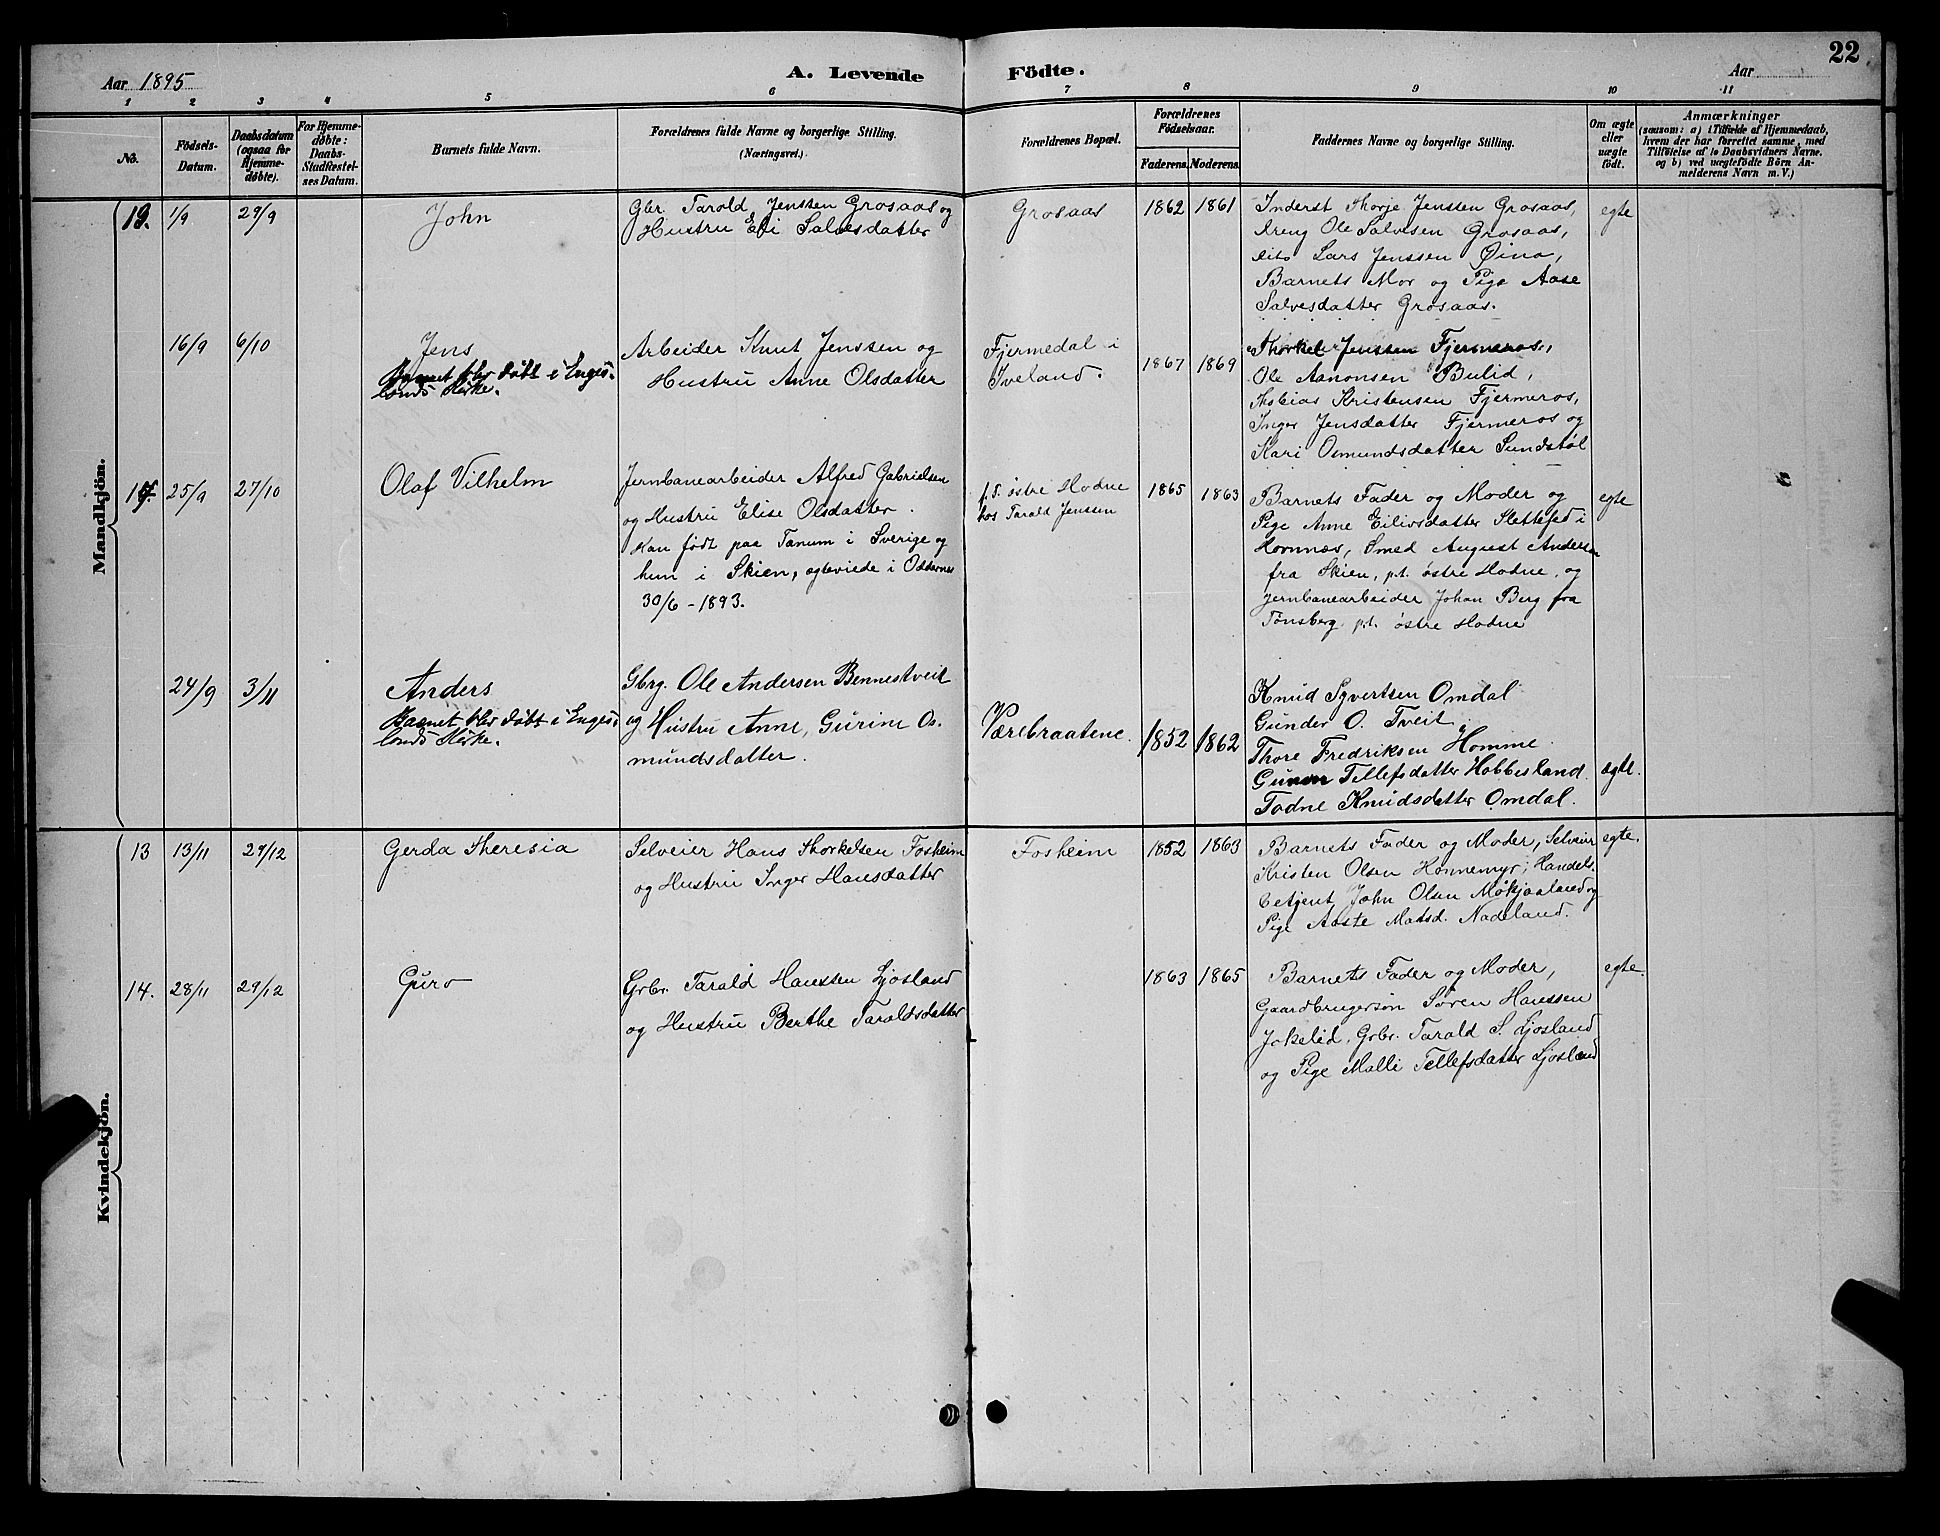 22
Aar 1895
A. Levende Födte.
Aar
1 2 3 4 5 6 7 8 9 10 11
No.
Födsels-
Datum.
Daabsdatum
(ogsaa for
Hjemme-
døbte).
For Hjemme-
døbte:
Daabs-
Stadfæstel-
ses Datum.
Barnets fulde Navn.
Forældrenes fulde Navne og borgerlige Stilling.
(Næringsvei.)
Forældrenes Bopæl.
Forældrenes
Fødselsaar.
Faderens. Moderens.
Faddernes Navne og borgerlige Stilling.
Om ægte
eller
uægte
født.
Anmærkninger
(saasom: a) i Tilfælde af Hjemmedaab,
hvem der har forrettet samme, med
Tilföielse af to Daabsvidners Navne.
og b) ved uægtefødte Börn An-
melderens Navn m. V.)
Mandkjön.
13. 1/9 29/9
John
Gbr. Tarold Jenssen Grosaas og
Hustru Eli Salvesdatter
Grosaas
1862 1861
Inderst Thorje Jenssen Grosaas,
dreng Ole Salvesen Grosaas,
dito Lars Jenssen Øina,
Barnets Mor og Pige Aase
Salvesdatter Grosaas.
egte
16/9 6/10
Jens
Barnet blev døbt i Enges-
lands Kirke.
Arbeider Knut Jenssen og
Hustru Anne Olsdatter
Fjermedal i
Iveland.
1867 1869
Thorkel Jenssen Fjermeros,
Ole Aanonsen Bulid,
Thobias Kristensen Fjermeros,
Inger Jensdatter Fjermeros og
Kari Osmundsdatter Sundstøl
25/9 27/10
Olaf Vilhelm
Jernbanearbeider Alfred Gabrielsen
og Hustru Elise Olsdatter.
Han født paa Tanum i Sverige og
hun i Skien, egteviede i Oddernes
30/6 - 1893.
østre Hodne
hos Tarald Jenssen
1865 1863
Barnets Fader og Moder og
Pige Anne Eilivsdatter Slettefed i
Hornnæs, Smed August Andersen
fra Skien, p.t. østre Hodne, og
jernbanearbeider Johan Berg fra
Tønsberg p.t. østre Hodne
egte
24/9 3/11
Anders
Barnet blev døbt i Enges-
lands Kirke.
Gbrg. Ole Andersen Bennestveit
og Hustru Anne Gurine Os-
mundsdatter.
Værebraatene.
1852 1862
Knud Syvertsen Omdal
Gunder O. Tveit.
Thore Fredriksen Homme.
Tellefsdatter Hobbesland.
Todne Knudsdatter Omdal.
ægte.
Kvindekjön.
13 13/11 29/12
Gerda Theresia
Selveier Hans Thorkelsen Fosheim
og Hustru Inger Hansdatter
Fosheim
1852 1863
Barnets Fader og Moder, Selveier
Kristen Olsen Honnemyr, Handels-
betjent John Olsen Møkjaaland og
Pige Aaste Matsd. Nadeland.
egte.
14. 28/11 29/12
Guro
Grbr. Tarald Hanssen Ljosland
og Hustru Berthe Taraldsdatter
1863 1865
Barnets Fader og Moder,
Gaardbrugersøn Søren Hanssen
Jokelid, Grbr. Tarald S. Ljosland
og Pige Malli Tellefsdatter Ljosland
egte.